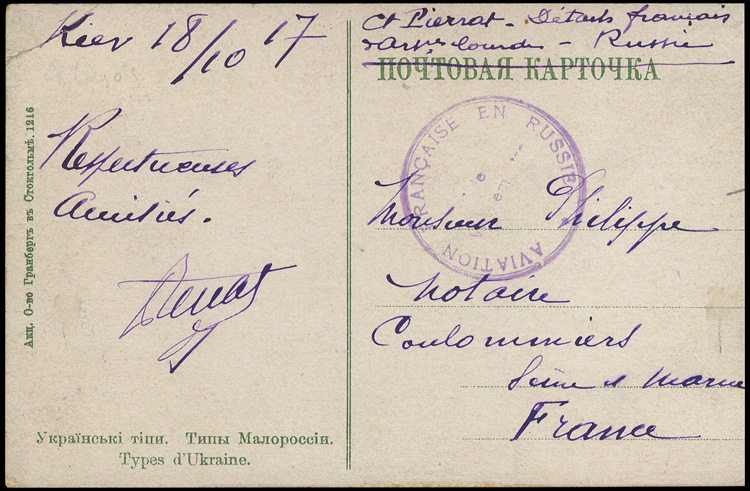 Kiev 18/10 17
Respectueuses
Amitiés.
Pierrat
Українські тіпи. Типы Малороссіи.
Types d'Ukraine.
Акц. О-во Гранбергъ въ Стокгольмѣ. 1216
Ct Pierrat - Détacts français
Russie
ПОЧТОВАЯ КАРТОЧКА
AVIATION FRANÇAISE EN RUSSIE
Monsieur Philippe
Notaire
Coulommiers
Seine & Marne
France